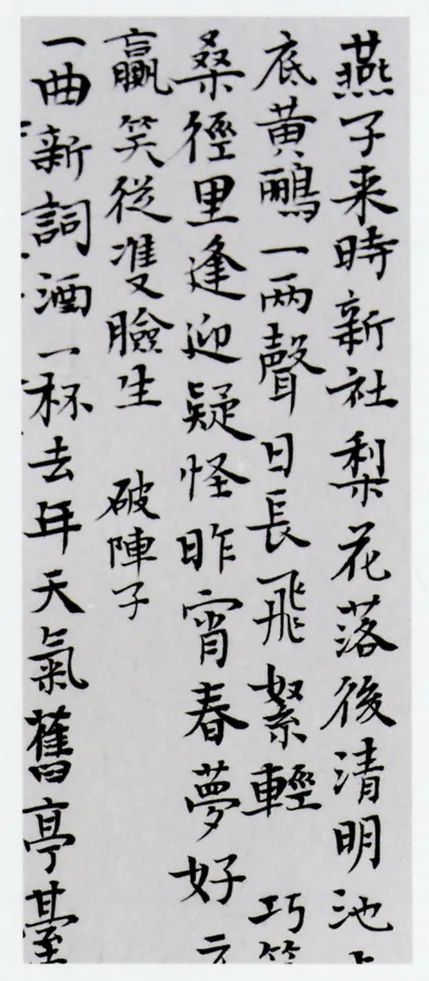 燕子来時新社梨花落後清明池
底黄鸝一两聲日長飛絮輕 巧
桑徑里逢迎疑怪昨宵春夢好
贏笑從雙臉生 破陣子
一曲新詞酒一杯去年天氣舊亭臺